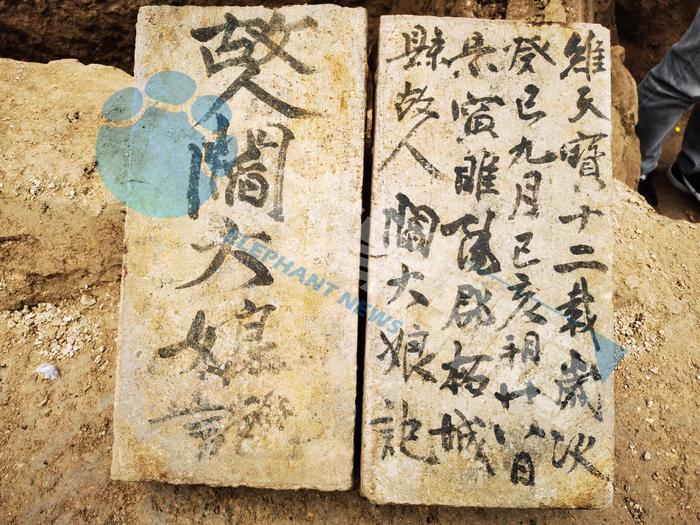 維天寶十二載歲次
癸巳九月己亥朔廿八日
景寅睢陽郡柘城
縣故人閻大娘記
故人閻大娘
ELEPHANT NEWS